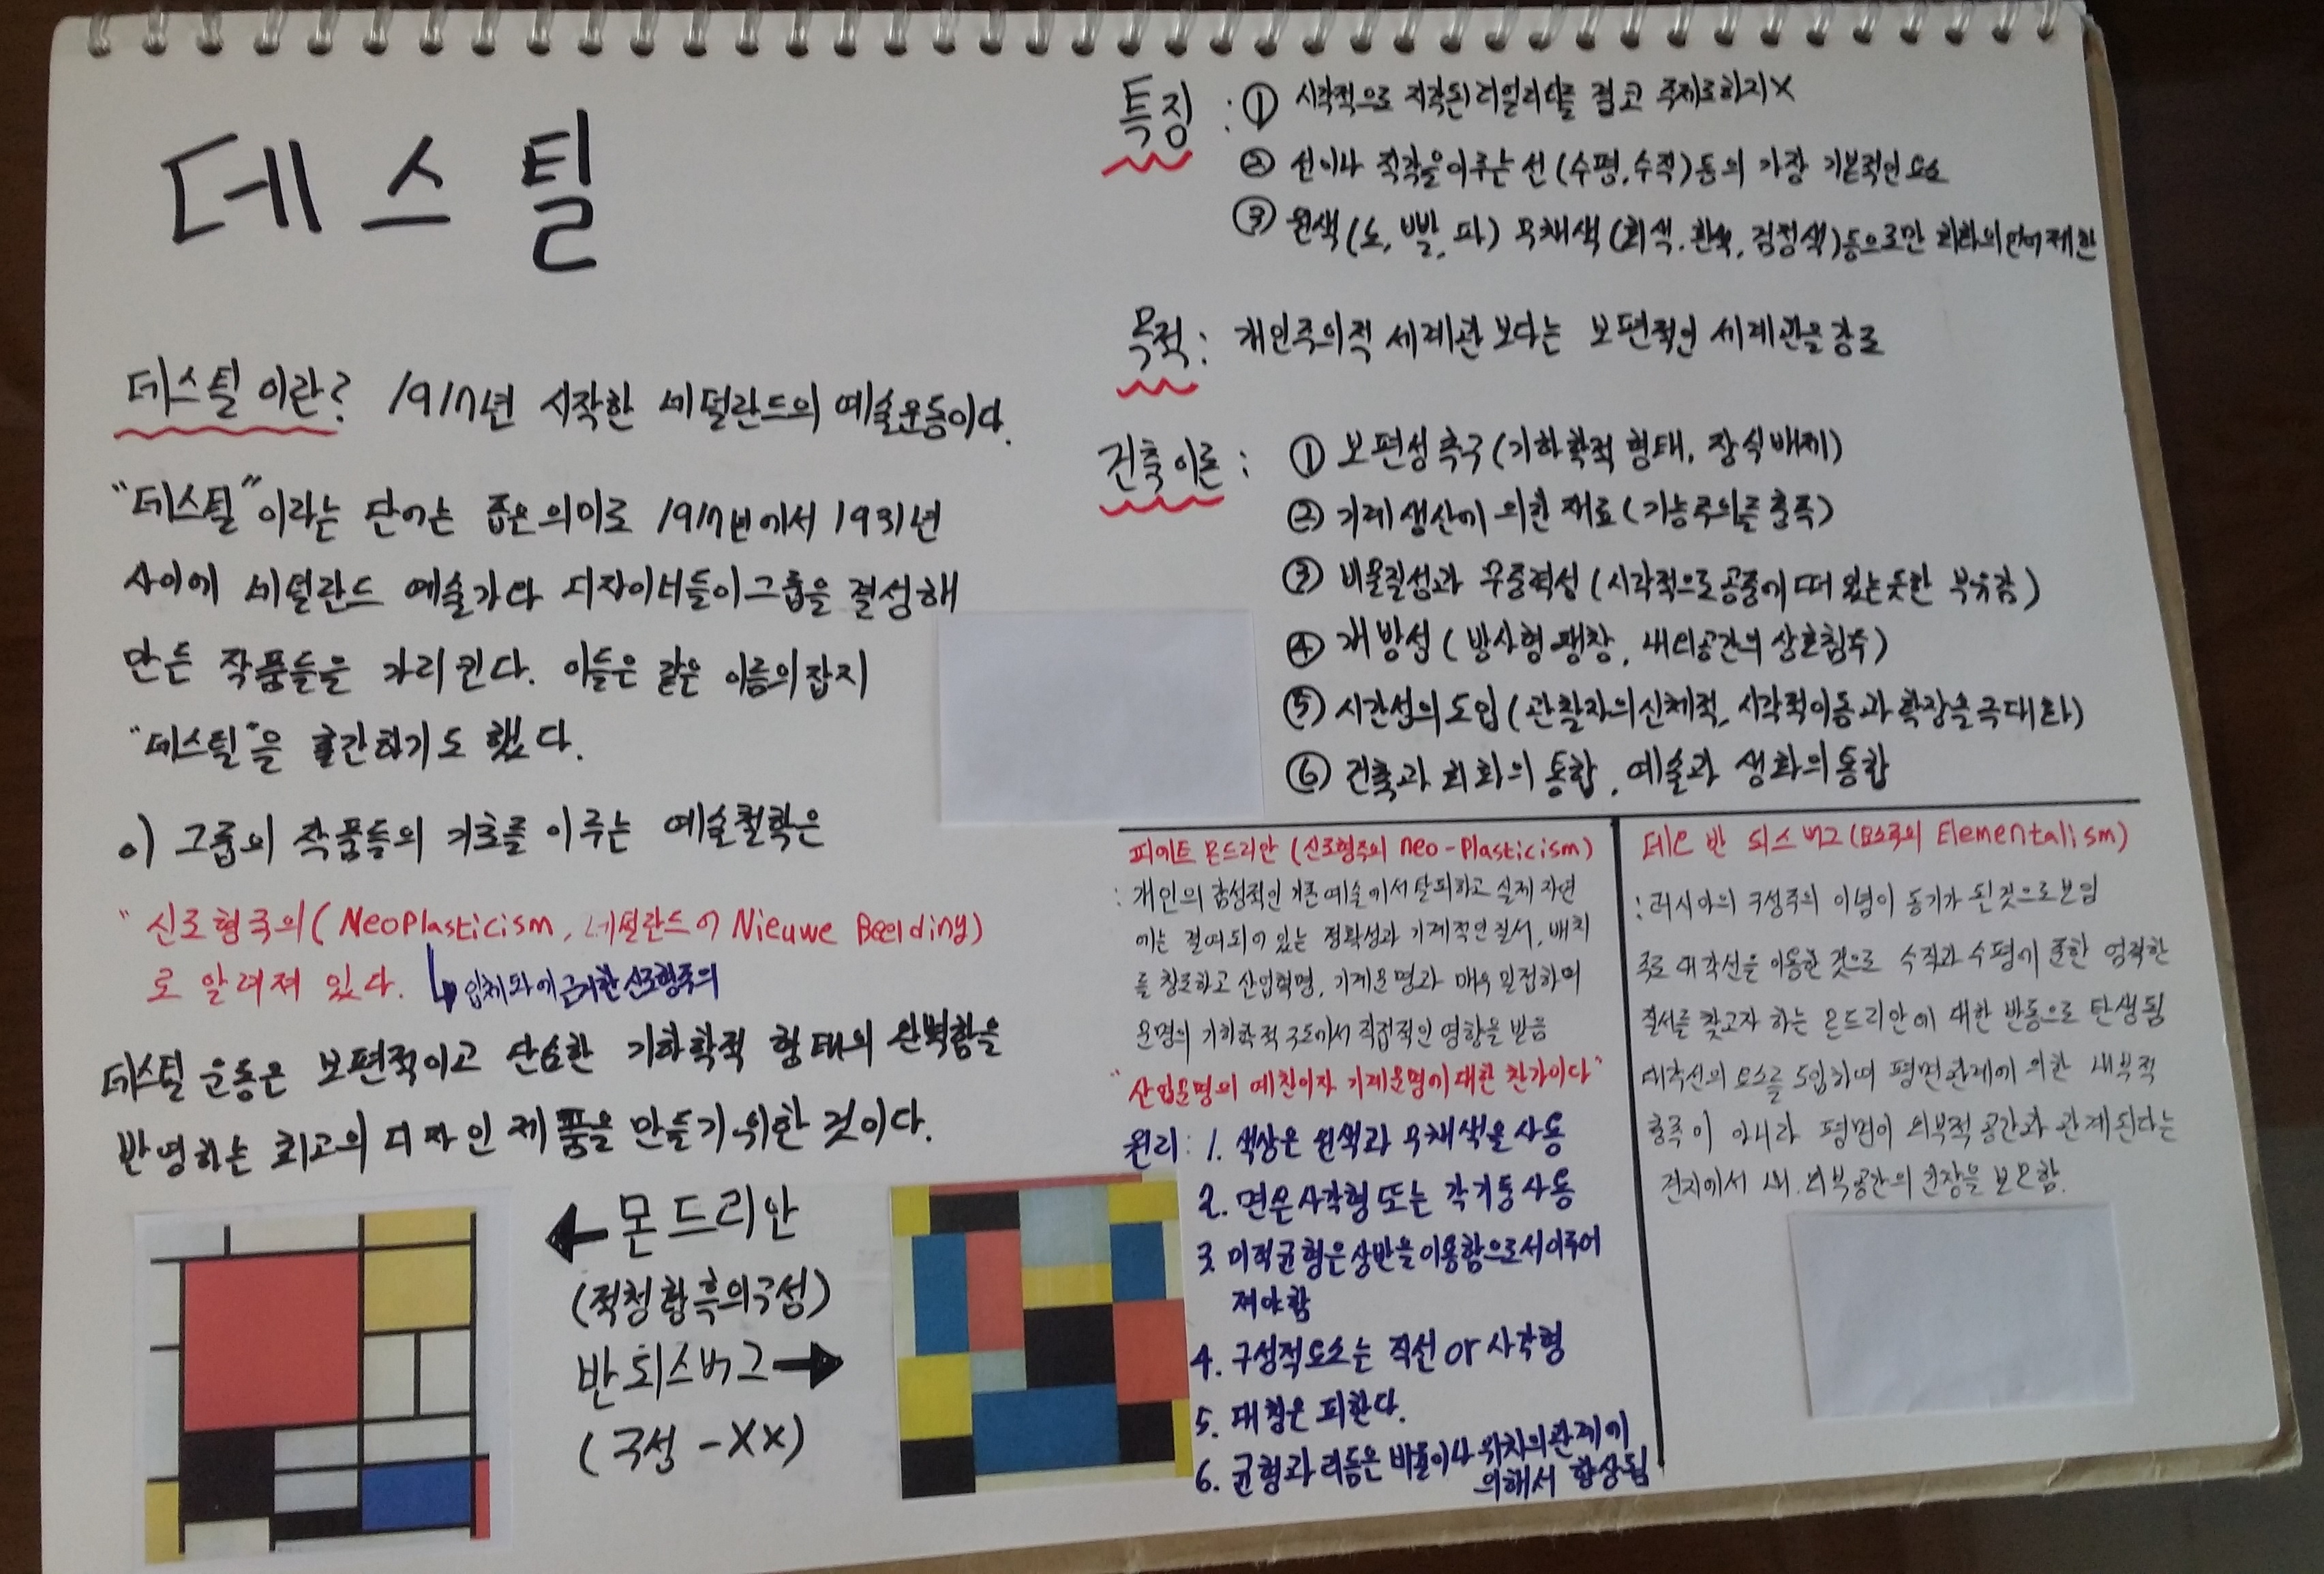 데스틸
데스틸 이란? 1917년 시작한 네덜란드의 예술운동이다.
"데스틸"이라는 단어는 좁은의미로 1917년에서 1931년
사이에 네덜란드 예술가와 디자이너들이 그룹을 결성해
만든 작품들을 가리킨다. 이들은 같은 이름의 잡지
"데스틸"을 출간하기도 했다.
이 그룹의 작품들의 기초를 이루는 예술철학은
"신조형주의(Neoplasticism, 네덜란드어 Nieuwe Beelding)
로 알려져 있다.
↳ 입체파에 근거한 신조형주의
데스틸 운동은 보편적이고 단순한 기하학적 형태의 완벽함을
반영하는 최고의 디자인 제품을 만들기 위한 것이다.
← 몬드리안
(적청황흑의구성)
반 되스버그 →
(구성 - XX)
특징 : ① 시각적으로 지각된 리얼리티를 결코 주제로하지X
② 선이나 직각을이루는 선(수평,수직)등의 가장 기본적인 요소
③ 원색(노, 빨, 파) 무채색(회색. 흰색, 검정색)등으로만 회화의 언어 제한
목적 : 개인주의적 세계관 보다는 보편적인 세계관을 강조
건축이론 : ① 보편성 추구(기하학적 형태, 장식배제)
② 기계생산에 의한 재료(기능주의를 충족)
③ 비물질성과 무중력성(시각적으로 공중에 떠 있는듯한 부유감)
④ 개방성(방사형팽창, 내외공간의 상호침투)
⑤ 시간성의 도입(관찰자의 신체적, 시각적이동과 확장을 극대화)
⑥ 건축과 회화의 통합, 예술과 생활의 통합
피에트 몬드리안 (신조형주의 neo-plasticism)
: 개인의 감성적인 기존예술에서 탈피하고 실제 자연
에는 결여되어 있는 정확성과 기계적인 질서, 배치
를 창조하고 산업혁명, 기계문명과 매우 밀접하며
문명의 기하학적 구도에서 직접적인 영향을 받음
"산업문명의 예찬이자 기계문명에 대한 찬가이다"
원리: 1. 색상은 원색과 무채색을 사용
2. 면은 사각형 또는 각기둥 사용
3. 미적균형은 상반을 이용함으로서 이루어
져야함
4. 구성적요소는 직선 or 사각형
5. 대칭은 피한다.
6. 균형과 리듬은 비율이나 위치의 관계에
의해서 향상됨
테오 반 되스버그(요소주의 Elementalism)
: 러시아의 구성주의 이념이 동기가 된것으로 보임
주로 대각선을 이용한 것으로 수직과 수평에 준한 엄격한
질서를 찾고자 하는 몬드리안에 대한 반동으로 탄생됨
대각선의 요소를 도입하며 평면관계에 의한 내부적
충족이 아니라 평면이 외부적 공간과 관계된다는
견지에서 내.외부공간의 긴장을 보존함.